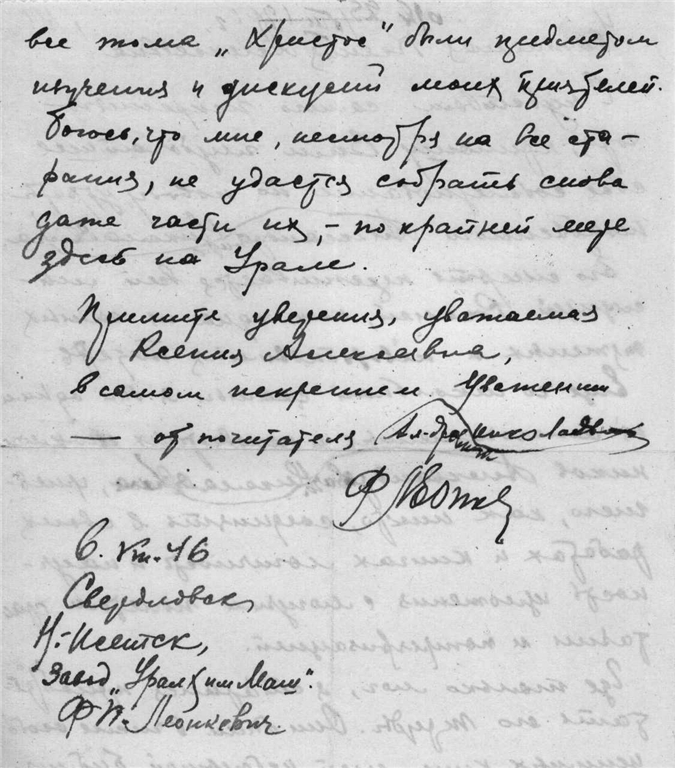 все тома „Христос" были предметом
изучения и дискусий моих приятелей.
Боюсь, что мне, несмотря на все ста-
рания, не удастся собрать снова
даже части их, - по крайней мере
здесь на Урале.
Примите уверения, уважаемая
Ксения Алексеевна,
в самом искреннем уважении
— от почитателя
6. VIII. 46
Свердловск,
Н.-Исетск,
Завод „Уралхиммаш".
Леонкевич.